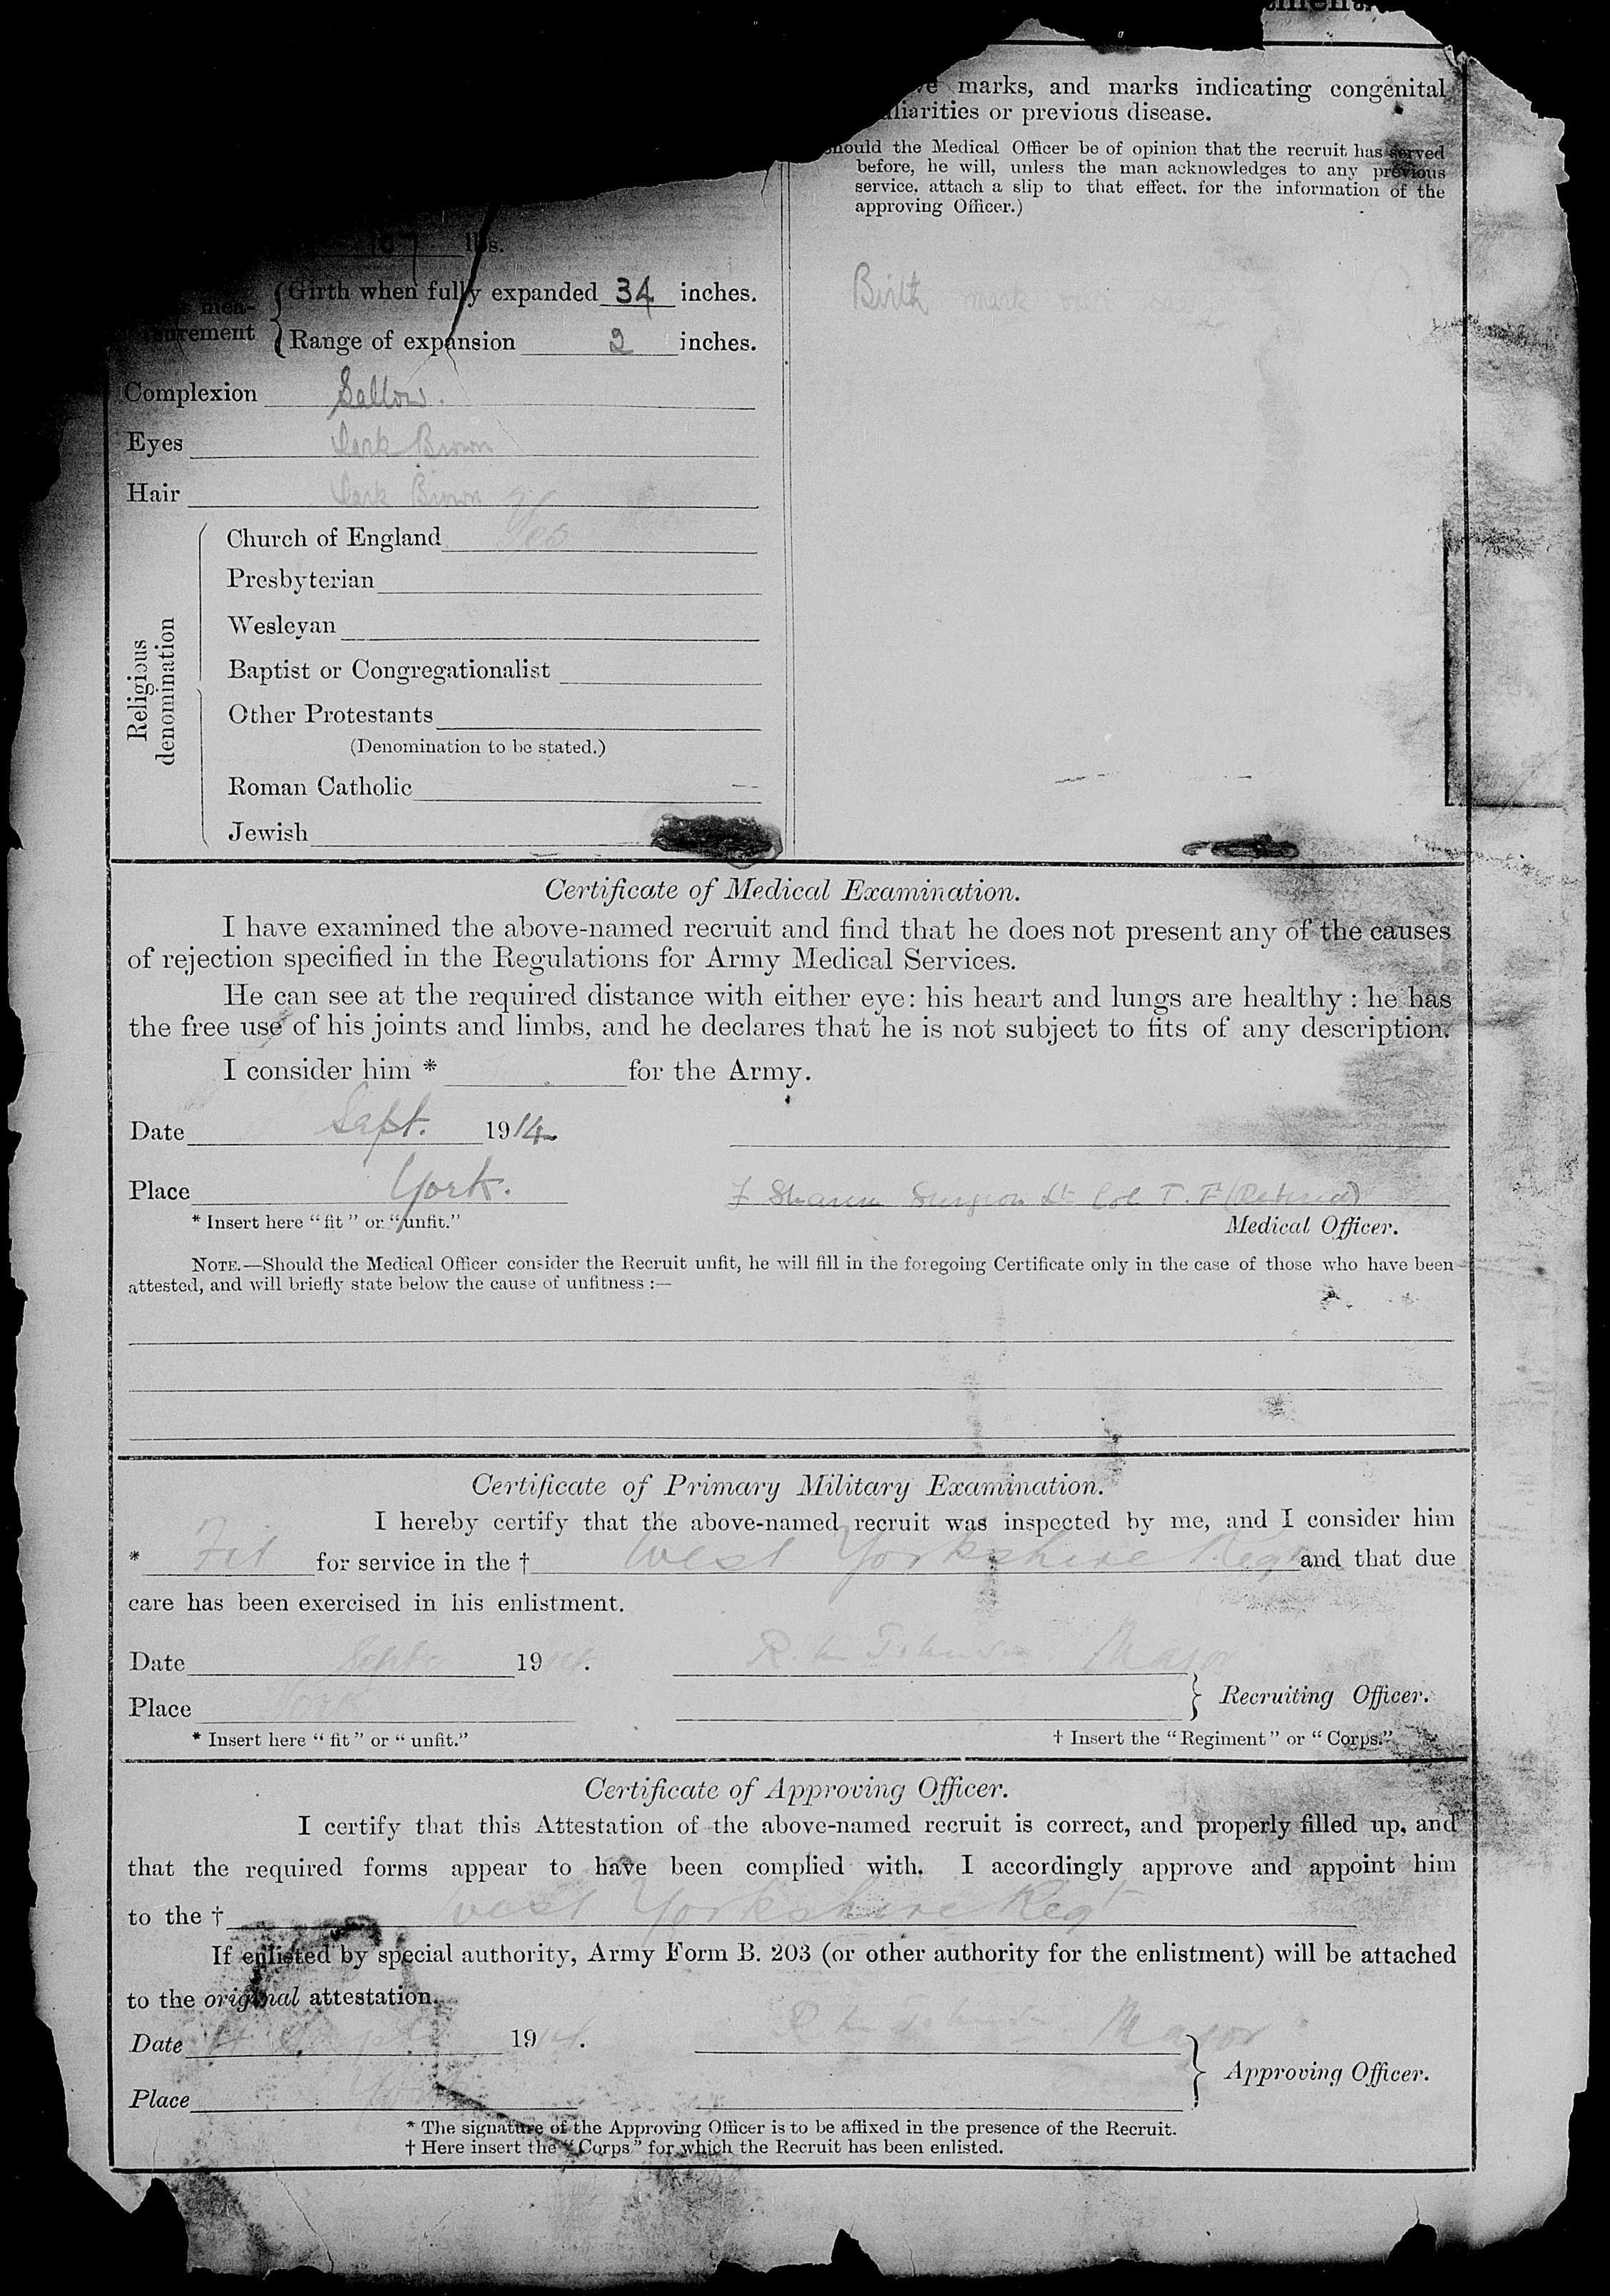 marks, and marks indicating congenital
or previous disease.
the Medical Officer be of opinion that the recruit has served
before, he will, unless the man acknowledges to any previous
service, attach a slip to that effect, for the information of the
approving Officer.)
lbs.
Birth mark
Girth when fully expanded 34 inches.
Range of expansion 2 inches.
Complexion Sallow.
Eyes Dark Brown
Hair Dark Brown
Religious denomination
Church of England Yes
Presbyterian
Wesleyan
Baptist or Congregationalist
Other Protestants
(Denomination to be stated.)
Roman Catholic
Jewish
Certificate of Medical Examination.
I have examined the above-named recruit and find that he does not present any of the causes
of rejection specified in the Regulations for Army Medical Services.
He can see at the required distance with either eye: his heart and lungs are healthy: he has
the free use of his joints and limbs, and he declares that he is not subject to fits of any description.
I consider him * for the Army.
Date Sept. 1914
Place York.
Surgeon Lt Col T. F (Retired)
* Insert here "fit" or "unfit."
Medical Officer.
NOTE.—Should the Medical Officer consider the Recruit unfit, he will fill in the foregoing Certificate only in the case of those who have been
attested, and will briefly state below the cause of unfitness :—
Certificate of Primary Military Examination.
I hereby certify that the above-named recruit was inspected by me, and I consider him
* Fit for service in the † West Yorkshire Regt and that due
care has been exercised in his enlistment.
Date 1914. Major
Place York
Recruiting Officer.
* Insert here "fit" or "unfit."
† Insert the "Regiment" or "Corps."
Certificate of Approving Officer.
I certify that this Attestation of the above-named recruit is correct, and properly filled up, and
that the required forms appear to have been complied with. I accordingly approve and appoint him
to the † West Yorkshire Regt
If enlisted by special authority, Army Form B. 203 (or other authority for the enlistment) will be attached
to the original attestation.
Date 1914. Major
Approving Officer.
Place York
* The signature of the Approving Officer is to be affixed in the presence of the Recruit.
† Here insert the "Corps" for which the Recruit has been enlisted.